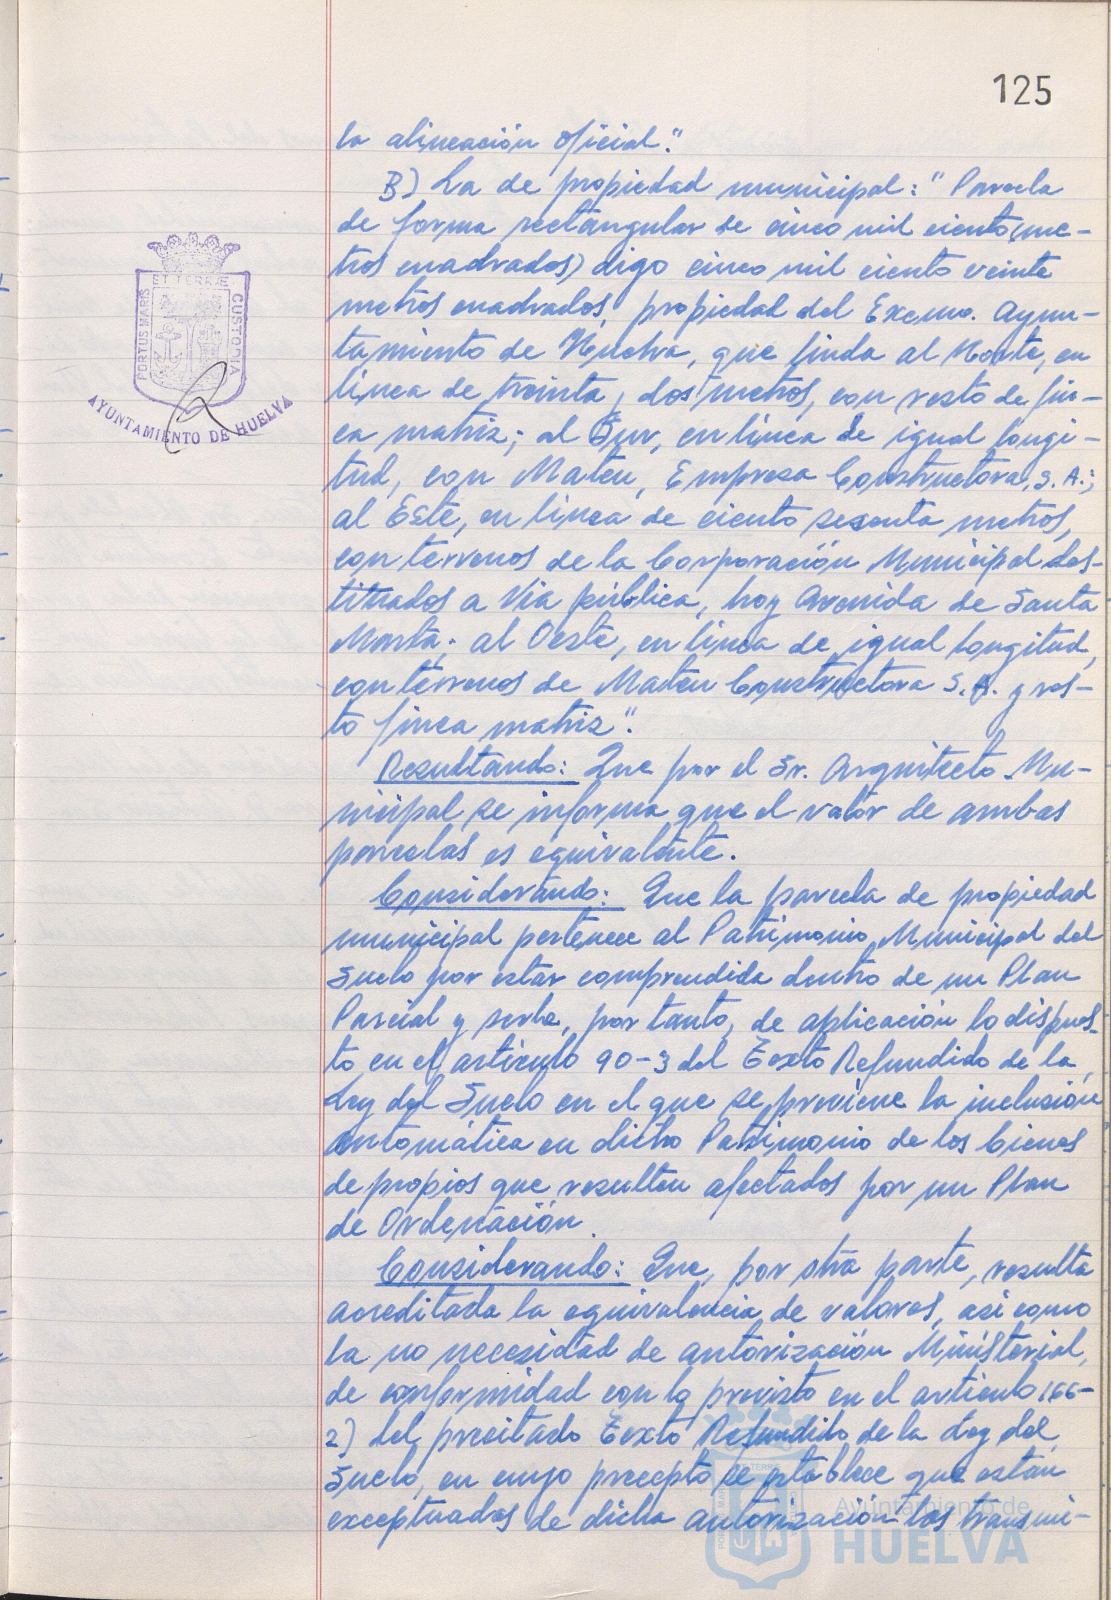 125
la alineación oficial".
B) La de propiedad municipal: "Parcela
de forma rectangular de cinco mil ciento (me-
tros cuadrados) digo cinco mil ciento veinte
metros cuadrados, propiedad del Excmo. Ayun-
tamiento de Huelva, que linda al Norte, en
línea de treinta y dos metros, con resto de fin-
ca matriz; al Sur, en línea de igual longi-
tud, con Mateu, Empresa Constructora, S.A.;
al Este, en línea de ciento sesenta metros,
con terrenos de la Corporación Municipal des-
tinados a Vía pública, hoy Avenida de Santa
Marta; al Oeste, en línea de igual longitud,
con terrenos de Mateu Constructora S.A. y res-
to finca matriz".
Resultando: Que por el Sr. Arquitecto Mu-
nicipal se informa que el valor de ambas
parcelas es equivalente.
Considerando: Que la parcela de propiedad
municipal pertenece al Patrimonio Municipal del
Suelo por estar comprendida dentro de un Plan
Parcial y serle, por tanto, de aplicación lo dispues-
to en el artículo 90-3 del Texto Refundido de la
Ley del Suelo en el que se previene la inclusión
automática en dicho Patrimonio de los bienes
de propios que resulten afectados por un Plan
de Ordenación.
Considerando: Que, por otra parte, resulta
acreditada la equivalencia de valores, así como
la no necesidad de autorización Ministerial,
de conformidad con lo previsto en el artículo 166-
2) del precitado Texto Refundido de la Ley del
Suelo, en cuyo precepto se establece que están
exceptuados de dicha autorización las transmi-
PORTUS MARIS
ET TERRÆ
CUSTODIA
AYUNTAMIENTO DE HUELVA
Ayuntamiento de
HUELVA